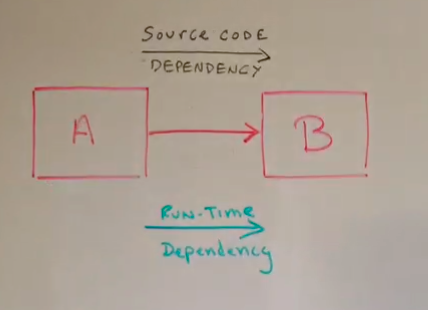 Source CODE
DEPENDENCY
A
B
RUN-TIME
Dependency